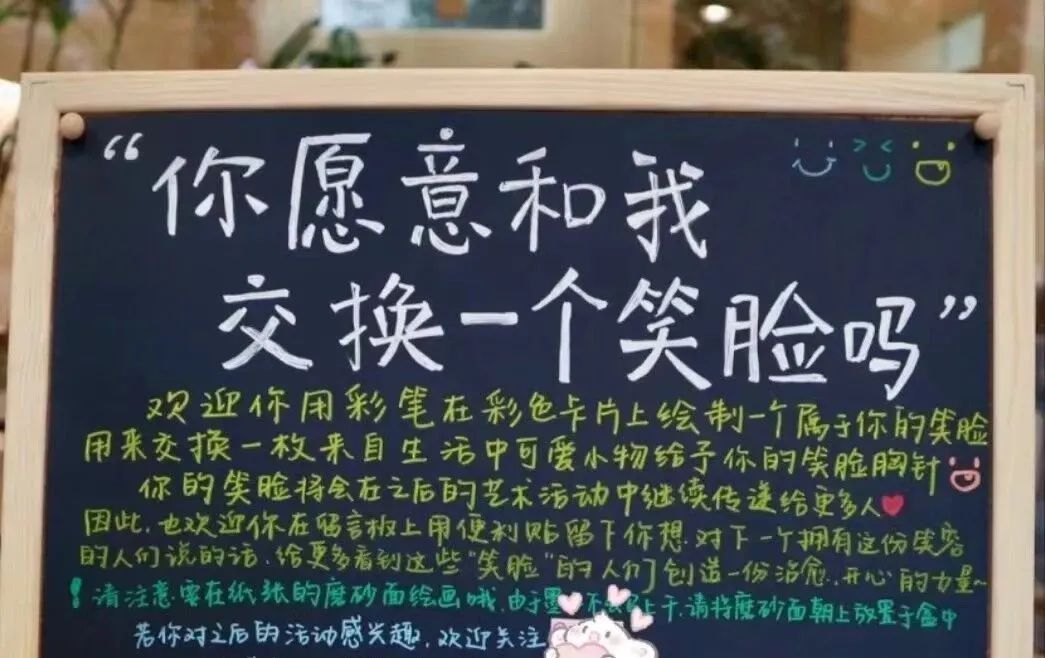 “你愿意和我
交换一个笑脸吗”
欢迎你用彩笔在彩色卡片上绘制一个属于你的笑脸
用来交换一枚来自生活中可爱小物给予你的笑脸胸针
你的笑脸将会在之后的艺术活动中继续传递给更多人
因此,也欢迎你在留言板上用便利贴留下你想对下一个拥有这份笑容
的人们说的话,给更多看到这些“笑脸”的人们创造一份治愈、开心的力量~
！请注意要在纸张的磨砂面绘画哦,由于墨 干,请将磨砂面朝上放置于盒中
若你对之后的活动感兴趣,欢迎关注